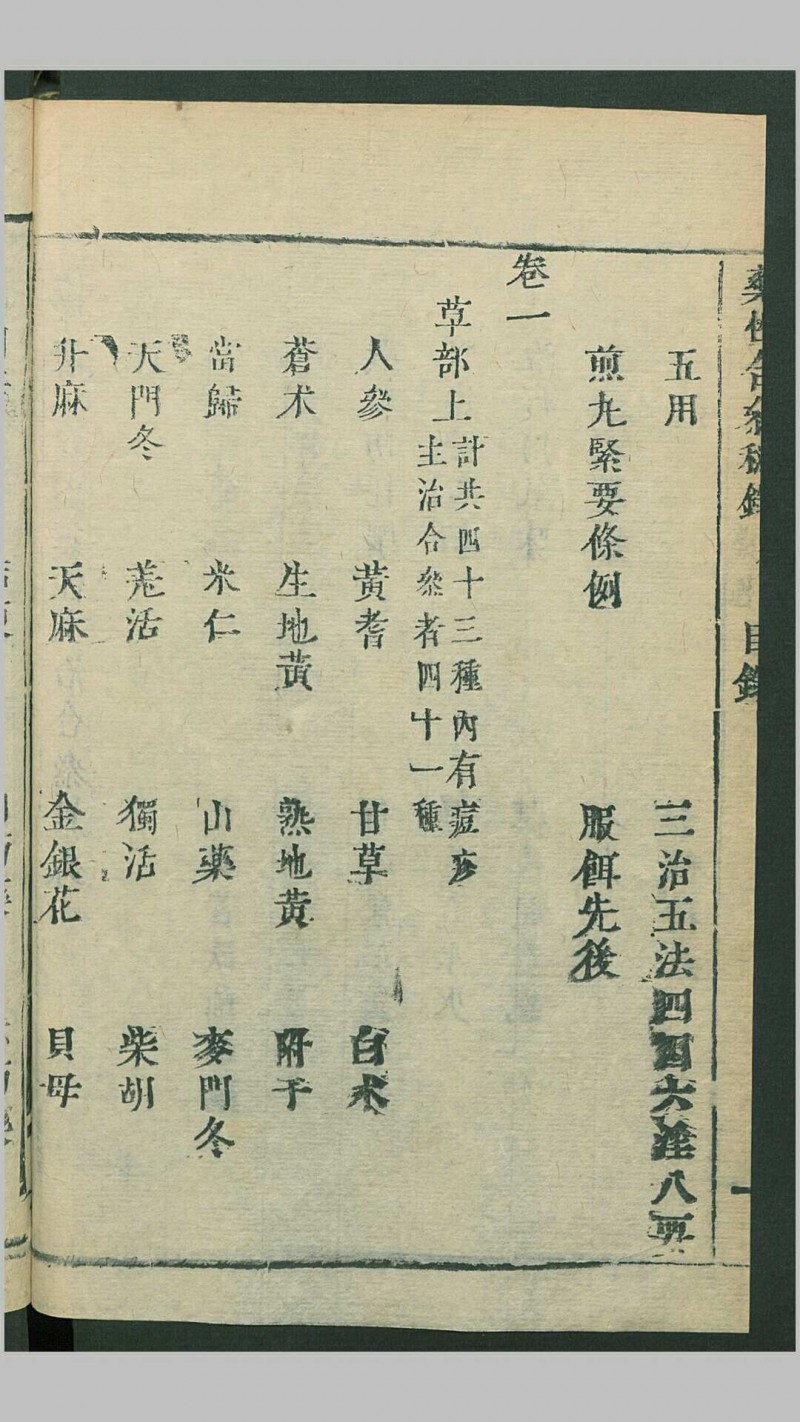 目錄
五用　三治五法四因六淫八要
煎丸緊要條例　服餌先後
卷一
草部上
計共四十三種內有痘疹
主治合參者四十一種
人參　黃耆　甘草　白朮
蒼朮　生地黃　熟地黃　附子
當歸　米仁　山藥　麥門冬
天門冬　羌活　獨活　柴胡
升麻　天麻　金銀花　貝母